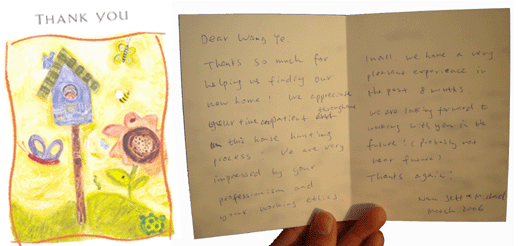 THANK YOU
Dear Wang Ye.
Thanks so much for
helping us finding our
new home! We appreciate
your time and patient throughout
on this house hunting
process. We are very
impressed by your
professionism and
your working ethics
In all, we have a very
pleasant experience in
the past 8 months
we are looking forward to
working with you in the
future! (Probably not
near future)
Thanks again!
&
March, 2006